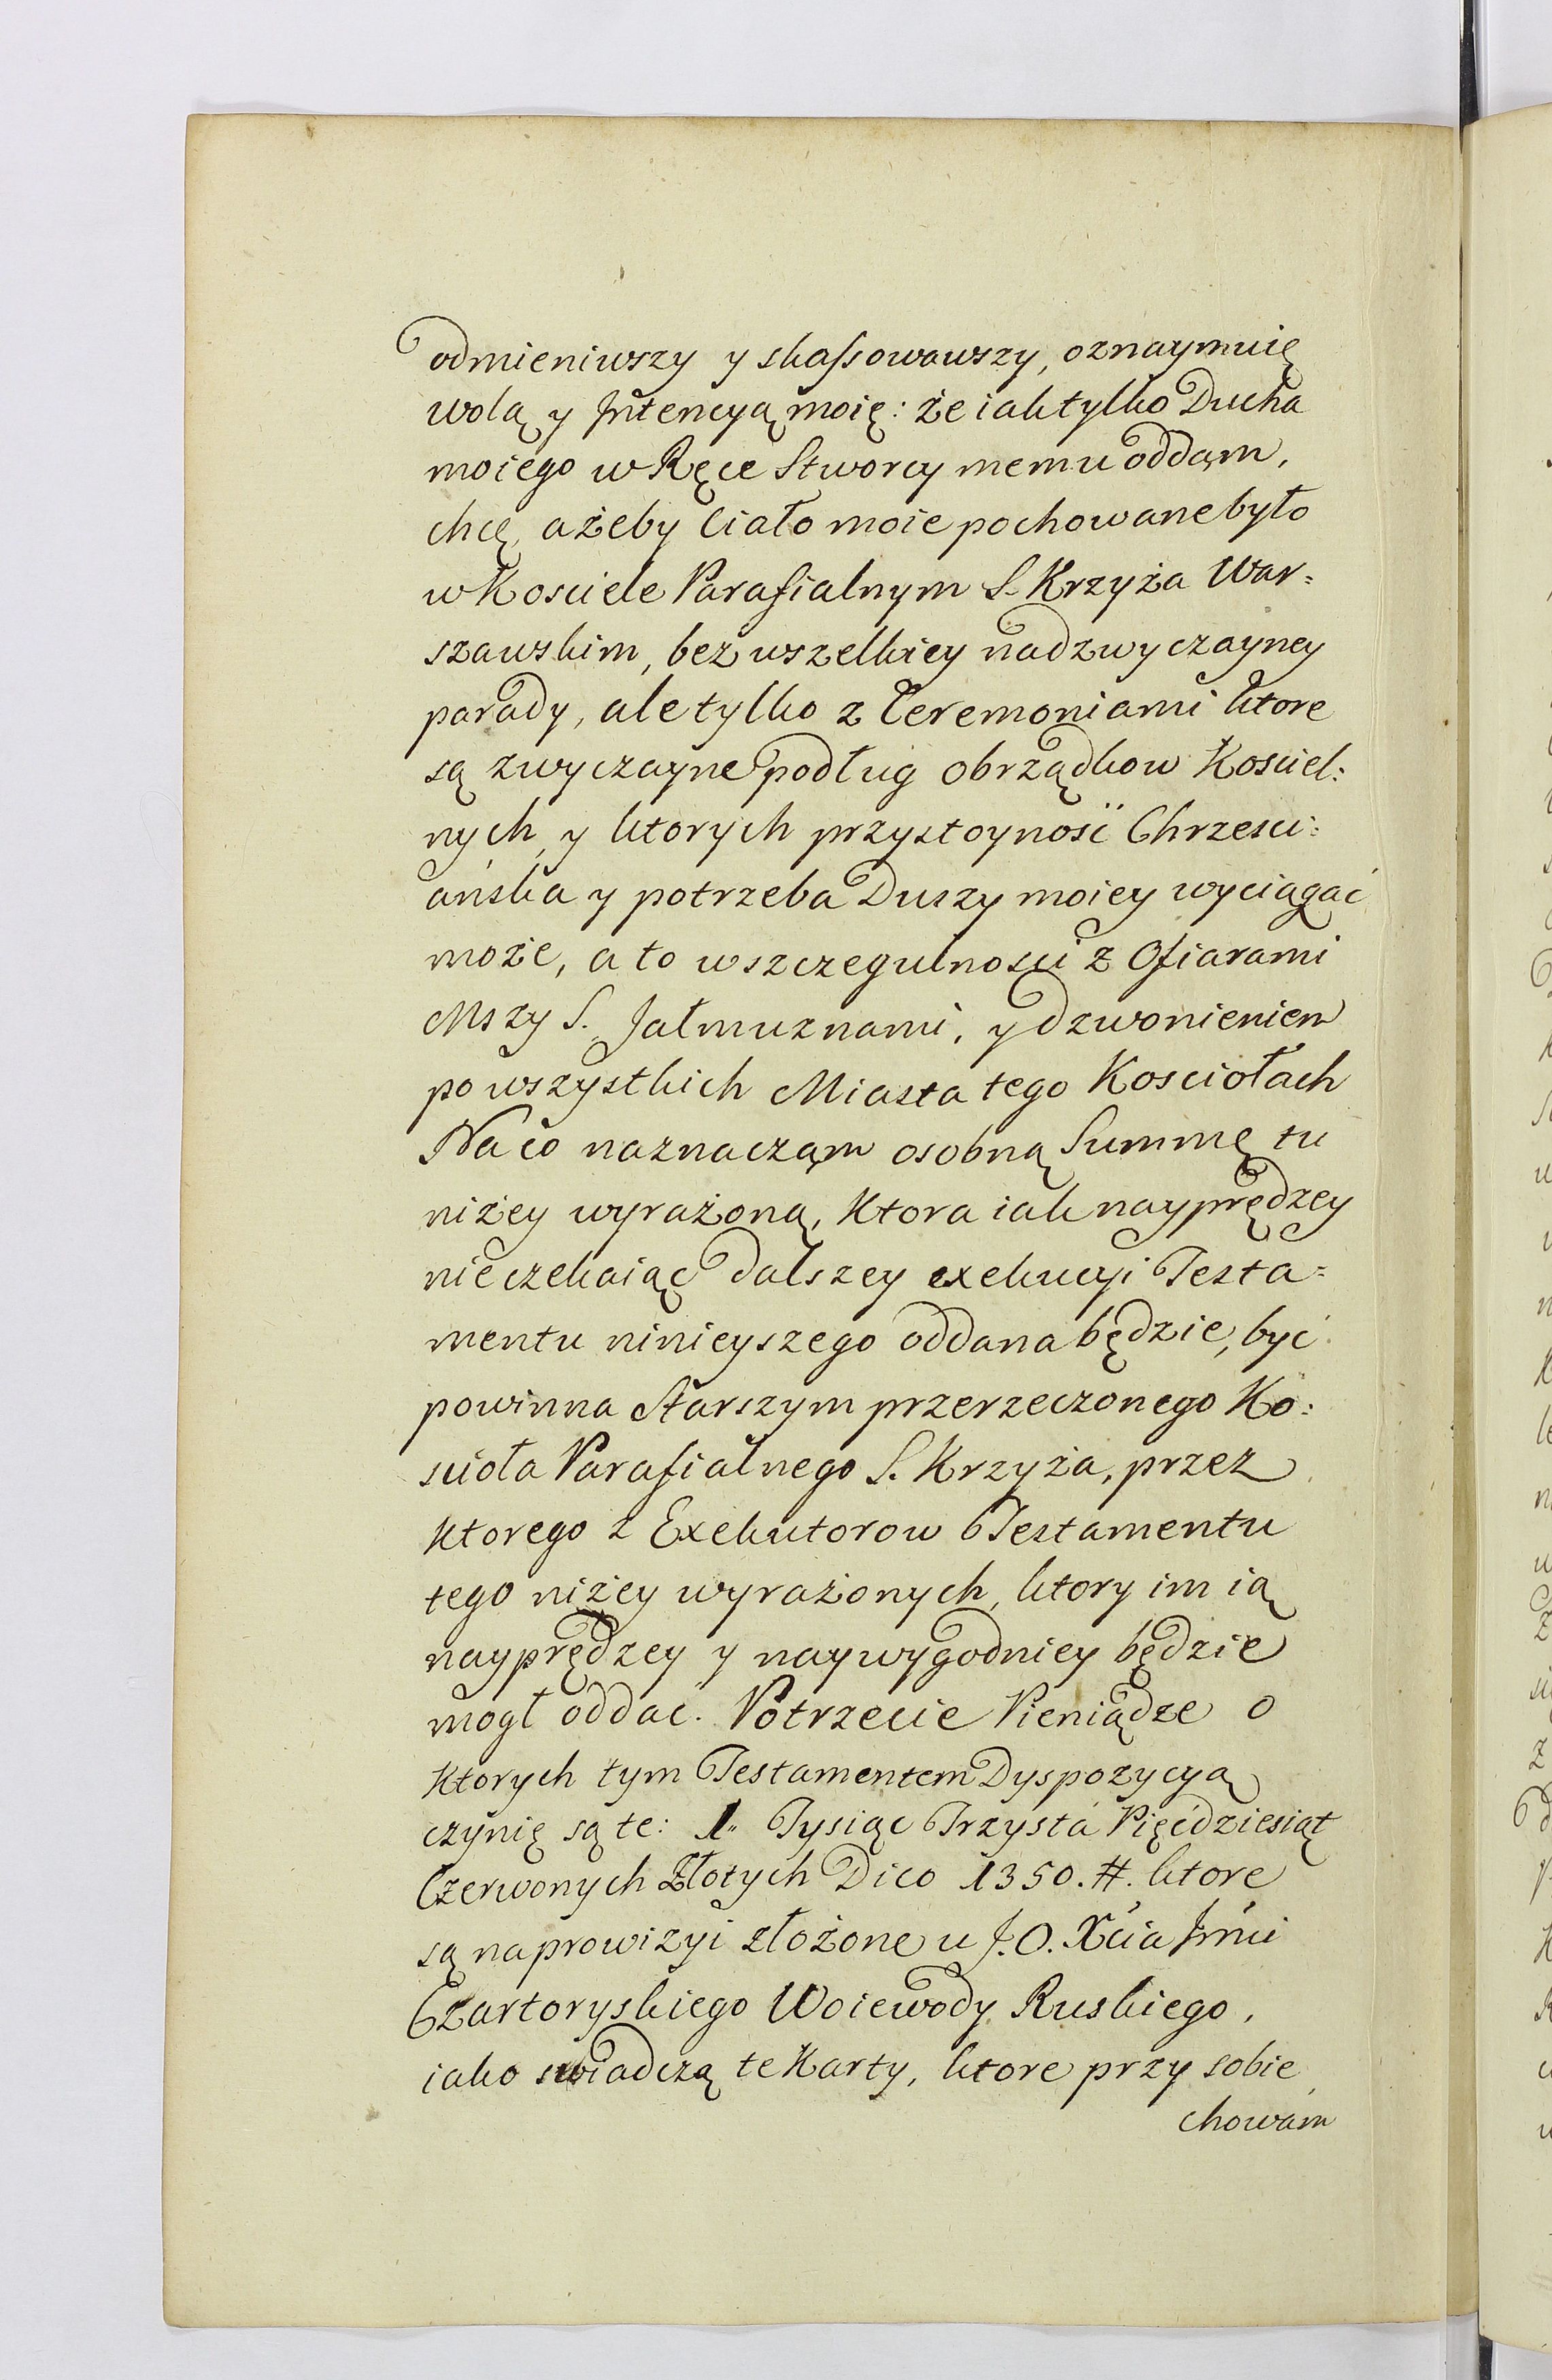 odmieniwszy y skassowawszy, oznaymuię
wolą y Jntencyą moię: że iak tylko Ducha
moiego w Ręce Stworcy memu oddam,
chcę, ażeby Ciało moie pochowane było
w Kosciele Parafialnym S. Krzyża War=
szawskim, bez wszelkiey nadzwyczayney
parady, ale tylko z Ceremoniami ktore
są zwyczayne podług obrządkow Kosciel=
nych, y ktorych przystoynosć Chrzesci=
ańska y potrzeba Duszy moiey wyciągać
może, a to w szczegulnosci z Ofiarami
Mszy S. Jałmuznami, y dzwonieniem
po wszystkich Miasta tego Kosciołach
Na co naznaczam osobną Summę tu
niżey wyrażoną, Ktora iak nayprędzey
nie czekaiąc dalszey exekucyi Testa=
mentu ninieyszego oddana będzie, być
powinna Starszym przerzeczonego Ko=
scioła Parafialnego S. Krzyża, przez
Ktorego z Exekutorow Testamentu
tego niżey wyrażonych, ktory im ią
nayprędzey y naywygodniey będzie
mogł oddać. Potrzecie Pieniądze o
Ktorych tym Testamentem Dyspozycyą
czynię są te: 1. Tysiąc Trzysta Pięćdziesiąt
Czerwonych Złotych Dico 1350. #. ktore
są na prowizyi złożone u J. O. Xcia Jmci
Czartoryskiego Woiewody Ruskiego,
iako swiadczą te Karty, ktore przy sobie
chowam